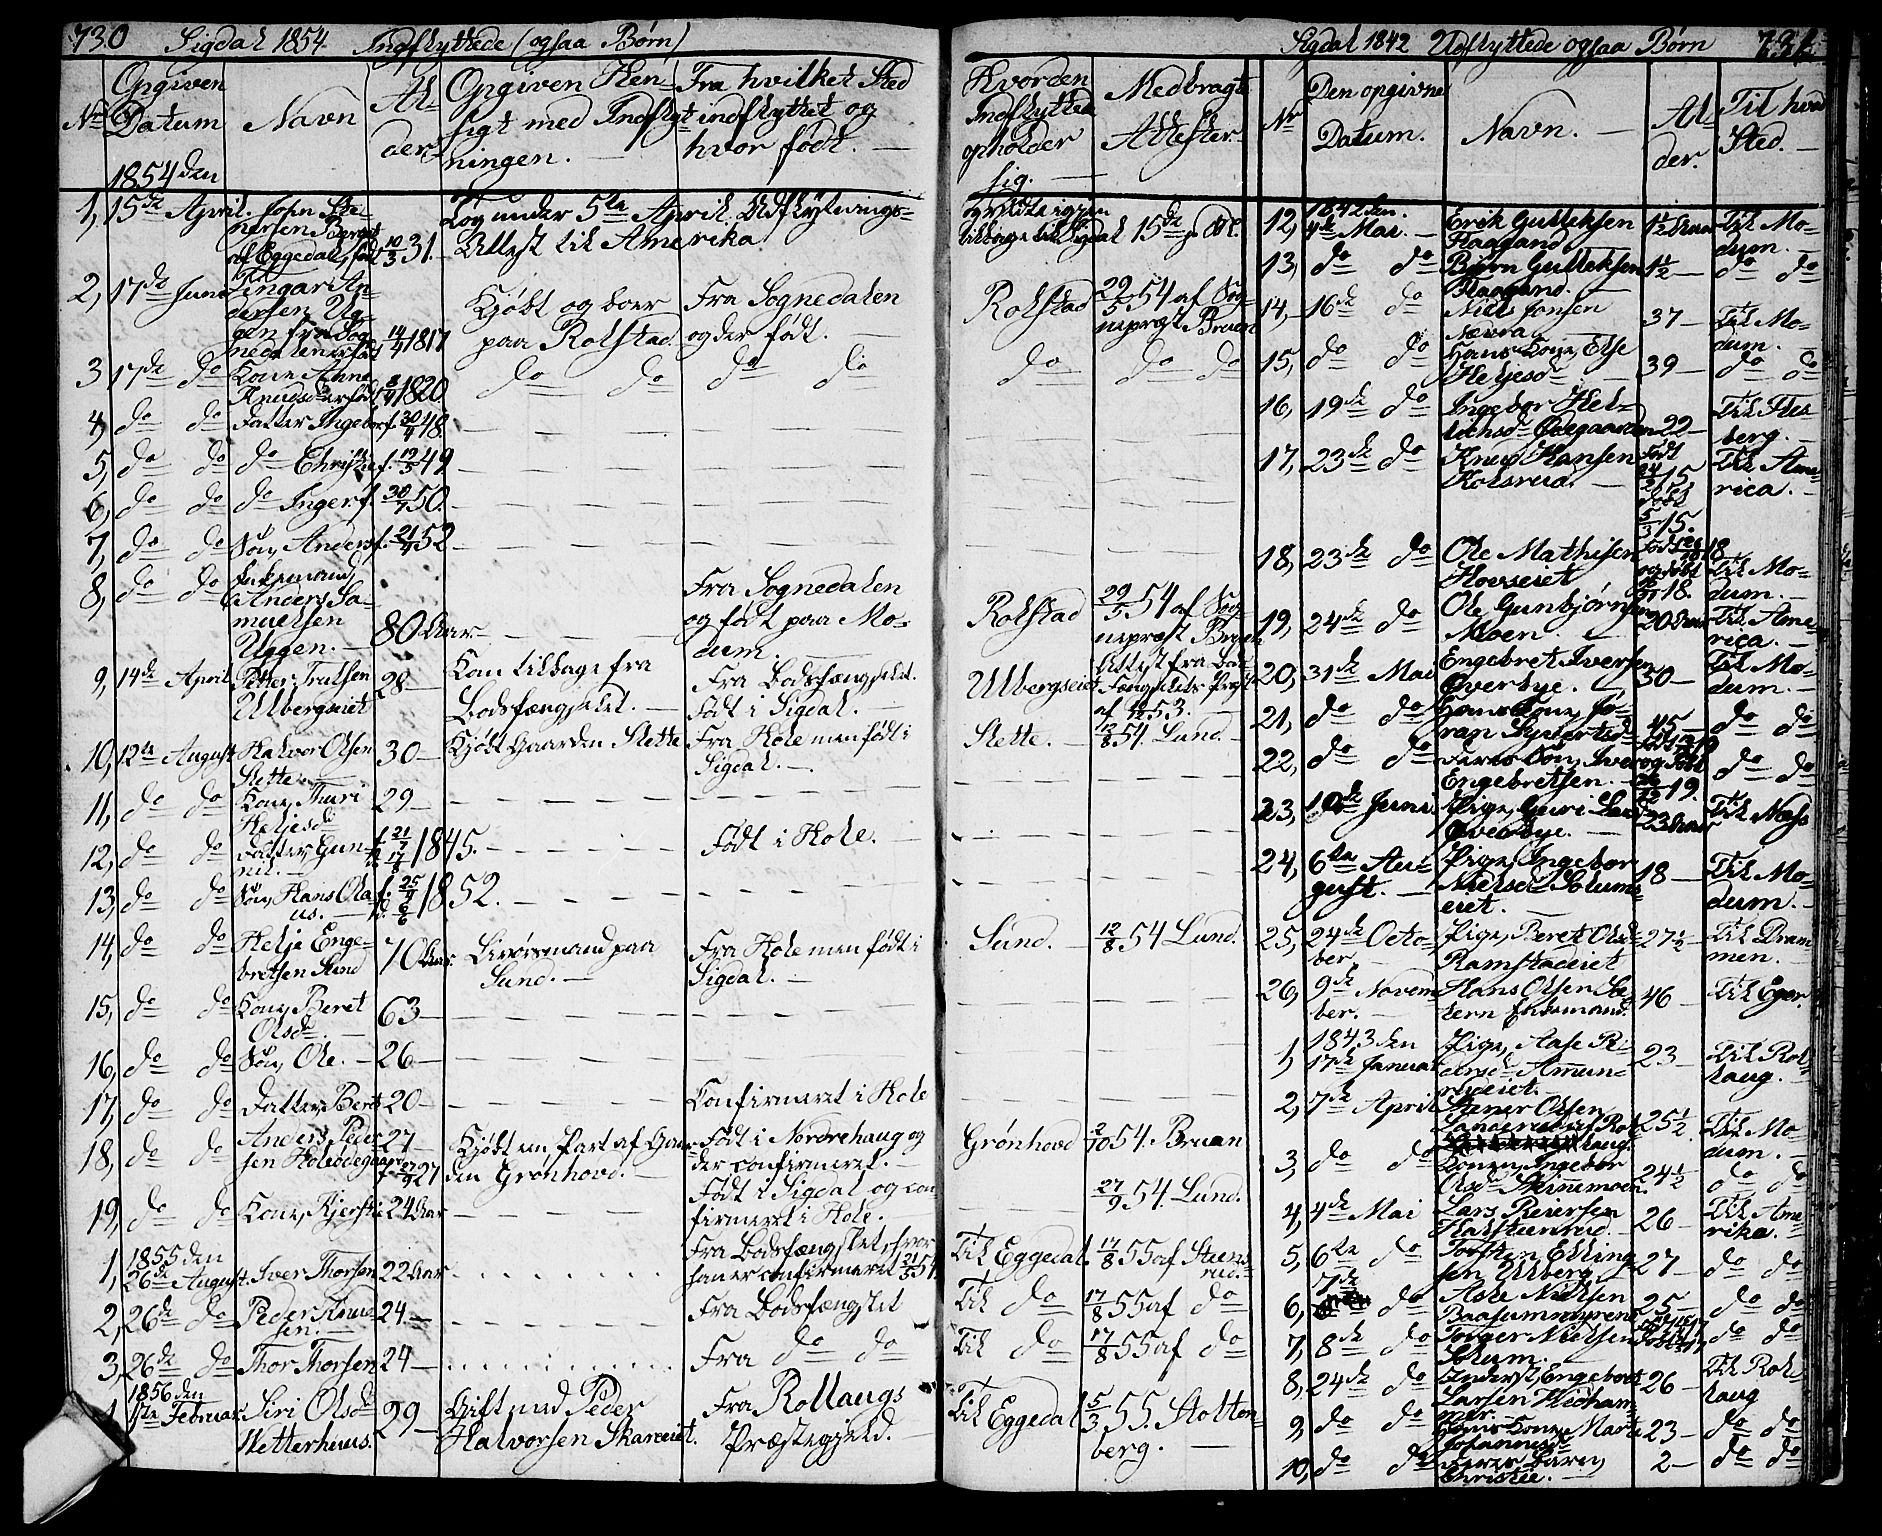 730 Sigdal 1854. Indflyttede (ogsaa Børn)
No
Opgiven
Datum
1854 den
Navn
Al-
der
Opgiven Hen-
sigt med Indflyt-
ningen.
Fra hvilket Sted
indflyttet og
hvor født.
Hvorden
Indflyttede
opholder
sig.
Medbragt
Attester.
1, 15de April. John Ste-
nersen Berget
af Eggedal, født 10/3 31.
Tog under 5te April Udflytnings-
Attest til Amerika
tilbage til Sigdal 15de
2, 17de Juni
dersen Ug-
gen fra Sog-
nedalen 14/4 1817
Kjøbt og boer
paa Rolstad
Fra Sognedalen
og der født.
Rolstad
29/5 54 af Sog-
nepræst Bruun
3 17de do Kone Anne
Knudsd født 8/9 1820
do do do do
do do do
4, do do Datter Ingebor f. 30/4 48.
5, do do do Christie f. 12/3 49
6, do do do Inger f. 30/7 50.
7, do do Søn, Anders f. 21/9 52
8, do do Enkemand,
Anders Sa-
muelsen
Uggen. 80 Aar
Fra Sognedalen
og født paa Mo-
dum.
Rolstad
29/5 54 af Sog-
nepræst Bruun
9, 14de April Petter Trulsen
Ulbergseiet
28
Kom tilbage fra
Bodsfængselet.
Fra Bodsfængselet.
født i Sigdal.
Ulbergseiet
Attest fra Bod
Fængselets Præst
af 53.
10, 12te August Halvor Olsen
Slette
30
Kjøbt Gaarden Slette
Fra Hole men født i
Sigdal.
Slette.
12/8 54. Lund
11, do do Kone, Thuri
Helgesd
29
12, do do Datter Gun-
nil. f. 21/7 1845.
Født i Hole.
13, do do Søn, Hans Ola-
us. f. 25/9 1852.
14, do do Helje Enge-
bretsen Lund
70 Aar
Livørsmand paa
Lund.
Fra Hole men født i
Sigdal.
Lund.
12/8 54 Lund.
15, do do Kone, Beret
Olsd.
63
16, do do Søn, Ole.
26
17, do do Datter, Berit
20
Confirmeret i Hole
18, do do Anders Peder
sen Holeødegaard
27
Kjøbt en Part af Gaar-
den Grønhovd.
Født i Nordrehaug og
der confirmeret.
Grønhovd
2/10 54. Bruun
19, do do Kone, Kjersti
24 Aar
Født i Sigdal og con
firmeret i Hole.
27/9 54. Lund.
1855 den
1, 26de August. Iver Thorsen
22 Aar
Fra Bodsfængslet, hvor
han er confirmeret 21/5 54
Til Eggedal.
17/8 55 af Steens-
rud.
2, 26de do Peder Knud
sen.
24
Fra Bodsfængslet
Til do
17/8 55 af do
3, 26de do Thor Thorsen
24
Fra do do
Til do
17/8 55 af do
1856 den
1, 1ste Februar Siri Olsd
Netterhuus.
29
Gift med Peder
Halvorsen Skareeiet.
Fra Rollaugs
Præstegjeld.
Til Eggedal
5/3 55. Stolten-
berg.
Sigdal 1842 Udflyttede ogsaa Børn 731
Nr
Den opgivne
Datum.
Navn.
Al-
der.
Til hvad
Sted.
1842 den.
12, 4de Mai. Erik Gulleksen
Haagand
1½ Aar
Til Mo-
dum.
13, do do Bjørn Gulleksen
Haagand.
1½ do do
14, 16de do Niels Jonsen
Nævra
37
Til Mo-
dum.
15, do do Hans Kone, Else
Helgesd
39 do do
16, 19de do Ingebor Hel-
Ødegaarden 22
Til Fles
berg.
17, 23de do Knud Hansen
Kolsrud.
født
15
5/3 15.
Til Ame
rica.
18, 23de do Ole Mathisen
Hovseiet
18.
Til Mo-
dum.
19, 24de do Ole Gunbjørnsen
Moen.
20 Aar
Til Ame-
rica.
20, 31de Mai Engebret Iversen
Øverbye.
50
Til Mo-
dum.
21, do do Hans Kone, Jø-
ran
45
do do
22, do do Deres Søn, Iver
Engebretsen.
19.
do do
23, 10de Juni Pige, Guri
Øverbye.
23 Aar
Til Næs
24, 6te Au-
gust. Pige, Ingebor
Nielsd Solums
eiet.
18
Til Mo-
dum.
25, 24de Octo-
ber, Pige, Beret Olsd
Ramstadeiet
27½
Til Dram
men.
26, 9de Novem
ber. Hans Olsen Sæ-
tern Enkemand.
46
Til Eger.
1843 den
1, 17de Januar Pige, Aase Re-
iersd Amun-
rudeiet.
23
Til Rol
laug.
2, 7de April Stener Olsen
25½
Til Mo-
dum.
3, do do Konen, Ingebor
Olsd
24½
do do
4, 4de Mai Lars Reiersen
Halsteenrud
26
Til Ame-
rika.
5, 6te do Torsten Elling
sen Ulberg
27
do do
6, 7de do Asle Nielsen
Baasummyrene
25
do do
7, 8de do Torger Nielsen
Solum.
do do
8, 24de do Underst, Engebret
Larsen
26
Til Rol
laug
9, do do Hans Kone Marte
Johannesd
23
do do
10, do do Deres Barn,
Christie.
2
do do